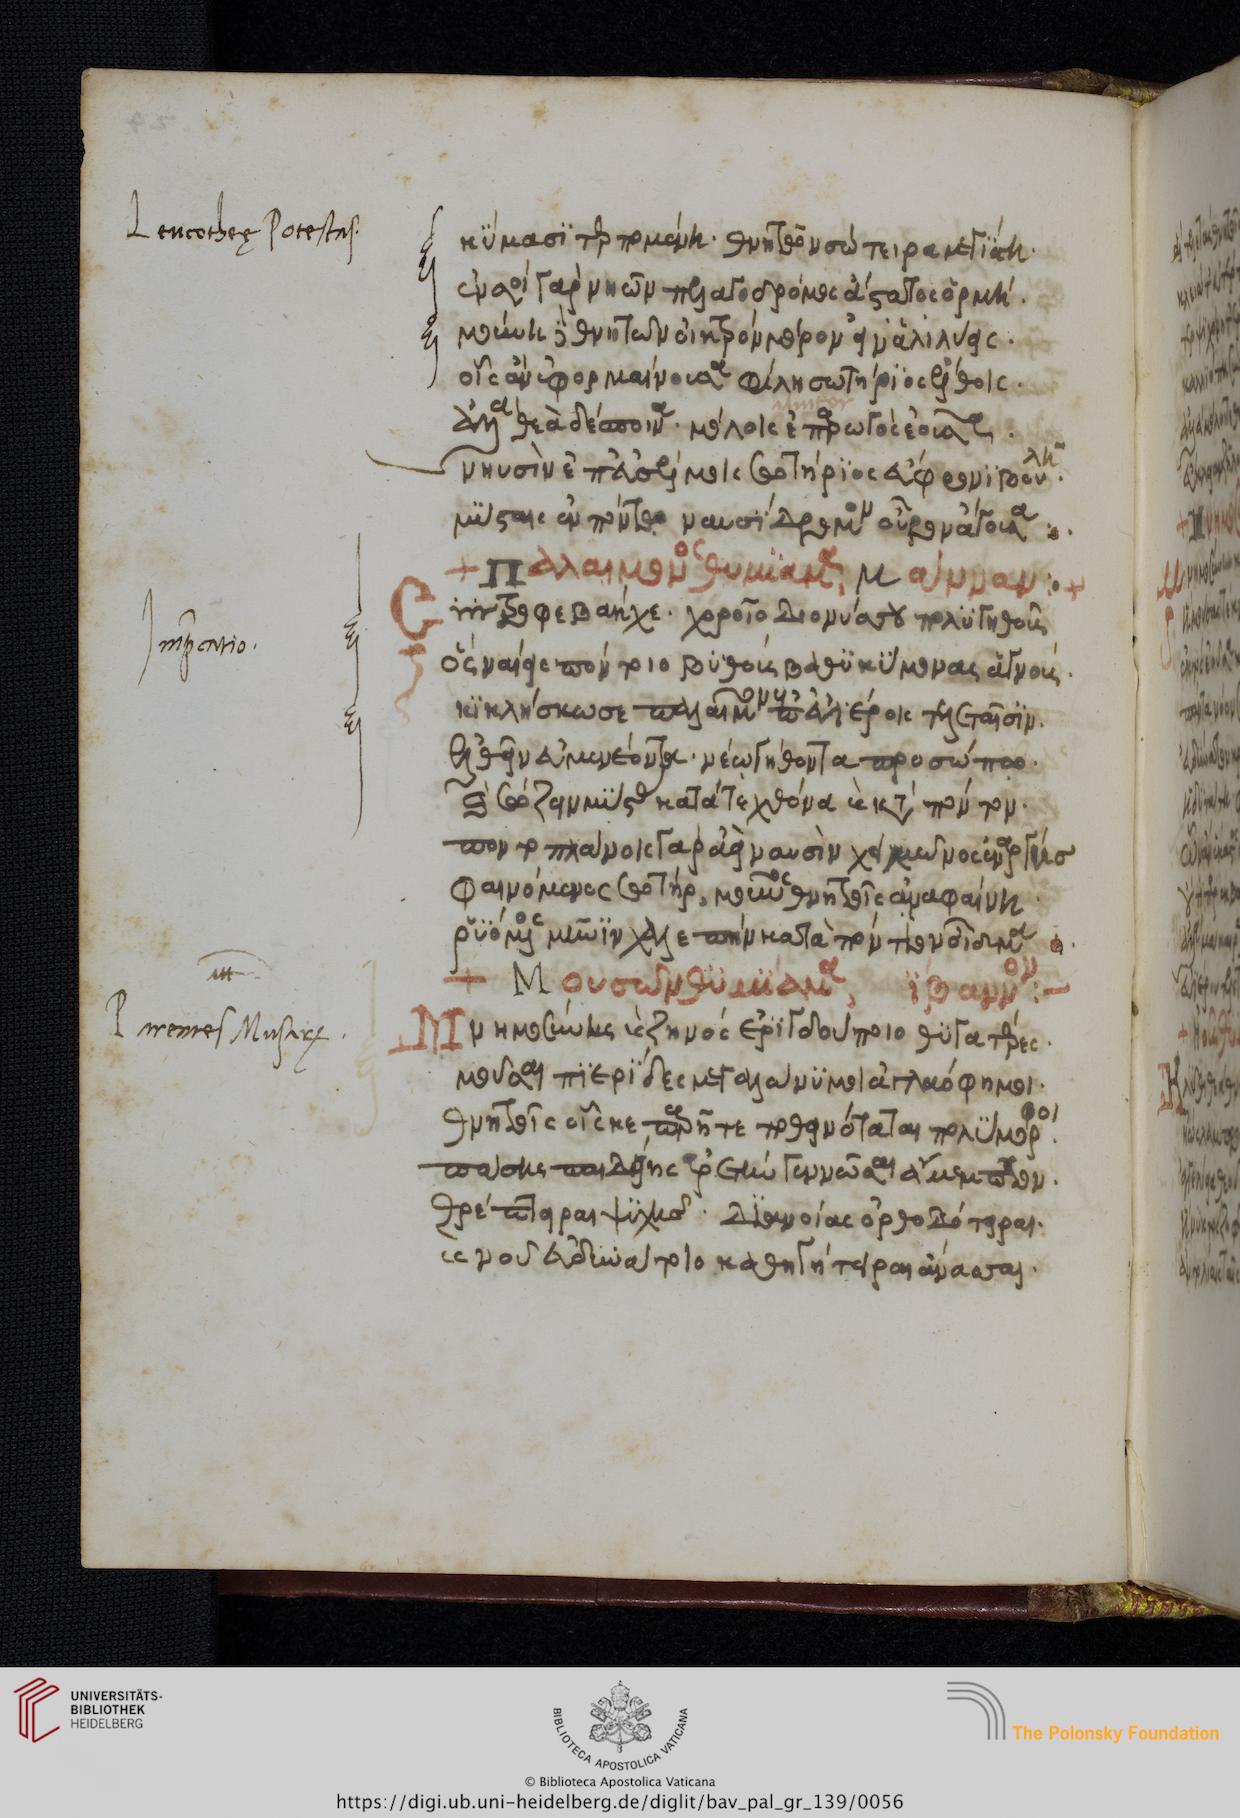 Leucotheę Potestas.
κύμασι τερπομένη· θνητῶν σώτειρα μεγίστη·
ἐν σοὶ γὰρ νηῶν πελαγοδρόμος ἄστατος ὁρμή·
μούνη δὲ θνητῶν οἰκτρὸν μόρον εἰν ἁλὶ λύεις·
οἷς ἂν ἐφορμαίνουσα φίλη σωτήριος ἔλθοις·
ἀλλὰ θεὰ δέσποινα· μόλοις ἐπαρωγὸς ἐοῦσα·
νηυσὶν ἐπ' εὐσέλμοις σωτήριος εὔφρονι βουλῆ·
μύσταις ἐν πόντω ναυσίδρομον οὖρον ἄγουσα
+ Παλαίμονος θυμίαμα, μάνναν +
Imprecatio.
Σύντροφε βακχεχόροιο Διονύσου πολυγηθοῦς
ὃς ναίεις πόντοιο βυθοὺς βαθυκύμονας ἁγνούς·
κικλήσκω σε Παλαῖμον ἐπ' εὐιέροις τελεταῖσιν·
ἐλθεῖν εὐμενέοντα· νέω γήθοντα προσώπω·
καὶ σώζειν μύστας κατά τε χθόνα καὶ κατὰ πόντον·
ποντοπλάνοις γὰρ ἀεὶ ναυσὶν χειμῶνος ἐναργὴς
φαινόμενος σωτήρ, μοῦνος θνητοῖς ἀναφαίνη·
ῥυόμενος μῆνιν χαλεπὴν κατὰ πόντιον οἶδμα
+ Μουσῶν θυμίαμα, λίβανον
Parentes Musarum.
Μνημοσύνης καὶ Ζηνὸς ἐριγδούποιο θύγατρες·
μοῦσαι πιερίδες μεγαλώνυμοι ἀγλαόφημοι·
θνητοῖς οἷς κε παρῆτε ποθεινόταται πολύμορφοι·
πάσης παιδείης ἀρετὴν γεννῶσαι ἄμεμπτον·
θρέπτειραι ψυχῆς· διανοίας ὀρθοδότειραι·
καὶ νοῦ εὐδυνάτοιο καθηγήτειραι ἄνασσαι·
UNIVERSITÄTS-
BIBLIOTHEK
HEIDELBERG
BIBLIOTECA APOSTOLICA VATICANA
The Polonsky Foundation
© Biblioteca Apostolica Vaticana
https://digi.ub.uni-heidelberg.de/diglit/bav_pal_gr_139/0056